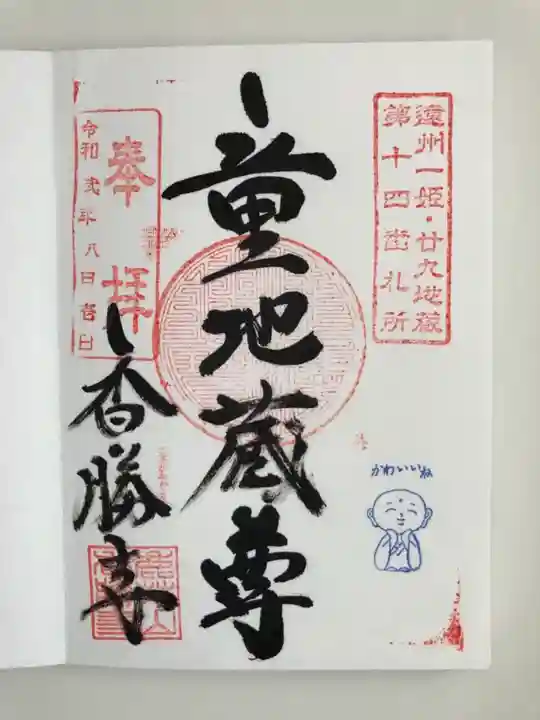 遠州一姫・廿九地蔵
第十四番札所
童地蔵尊
奉拝
令和弐年八月吉日
香勝寺
かわいいね